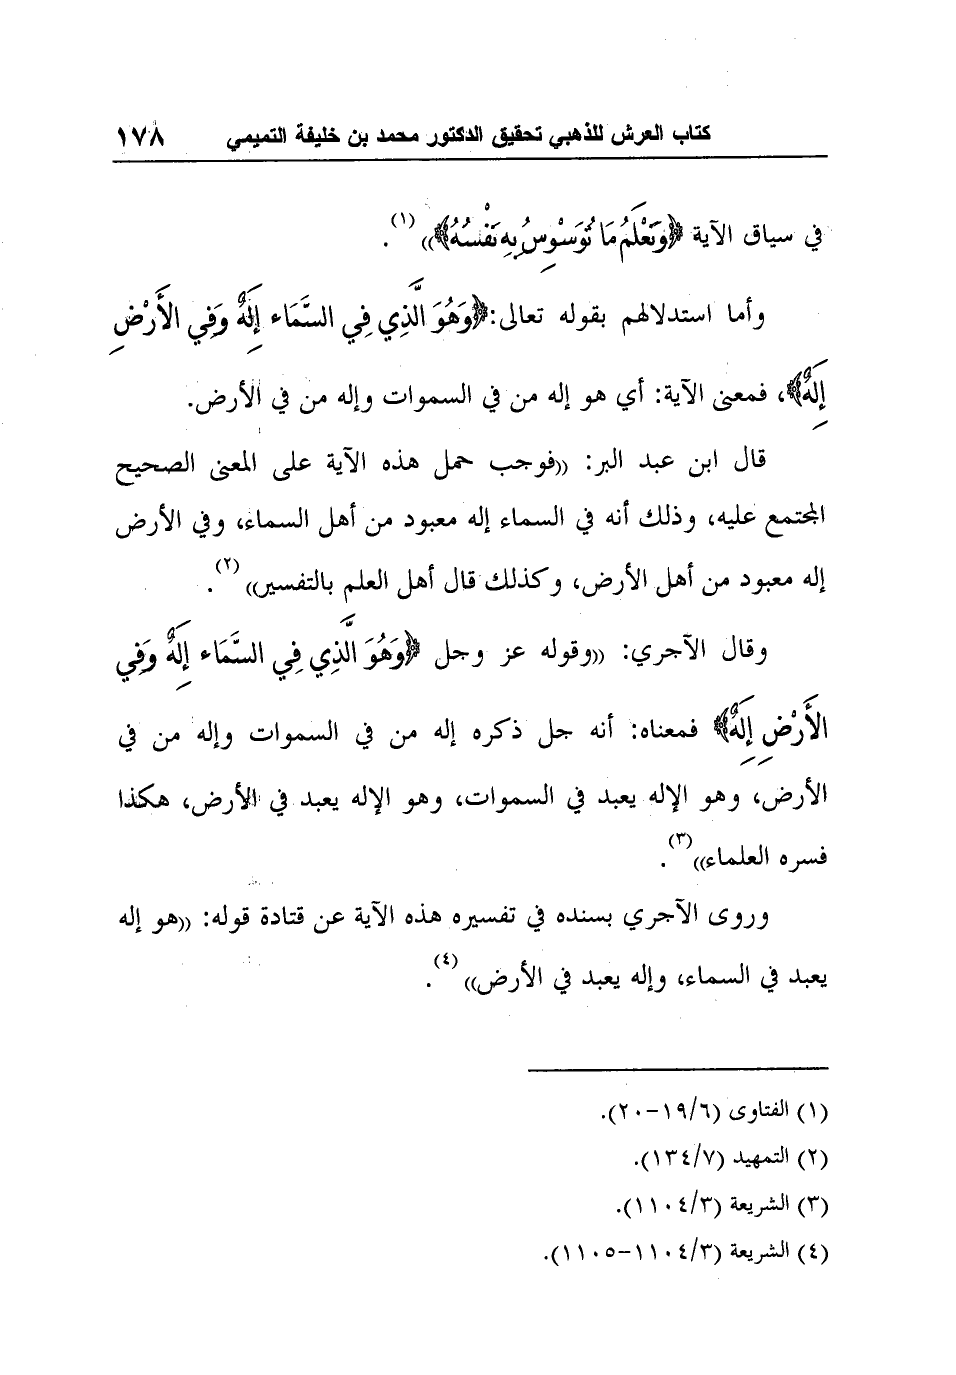 كتاب العرش للذهبي تحقيق الدكتور محمد بن خليفة التميمي ١٧٨
في سياق الآية ﴿وَنَعْلَمُ مَا تُوَسْوِسُ بِهِ نَفْسُهُ﴾))(١).
وأما استدلالهم بقوله تعالى:﴿وَهُوَ الَّذِي فِي السَّمَاءِ إِلَهٌ وَفِي الأَرْضِ
إِلَهٌ﴾، فمعنى الآية: أي هو إله من في السموات وإله من في الأرض.
قال ابن عبد البر: ((فوجب حمل هذه الآية على المعنى الصحيح
المجتمع عليه، وذلك أنه في السماء إله معبود من أهل السماء، وفي الأرض
إله معبود من أهل الأرض، وكذلك قال أهل العلم بالتفسير))(٢).
وقال الآجري: ((وقوله عز وجل ﴿وَهُوَ الَّذِي فِي السَّمَاءِ إِلَهٌ وَفِي
الأَرْضِ إِلَهٌ﴾ فمعناه: أنه جل ذكره إله من في السموات وإله من في
الأرض، وهو الإله يعبد في السموات، وهو الإله يعبد في الأرض، هكذا
فسره العلماء))(٣).
وروى الآجري بسنده في تفسيره هذه الآية عن قتادة قوله: ((هو إله
يعبد في السماء، وإله يعبد في الأرض))(٤).
(١) الفتاوى (١٩/٦-٢٠).
(٢) التمهيد (١٣٤/٧).
(٣) الشريعة (١١٠٤/٣).
(٤) الشريعة (١١٠٤/٣-١١٠٥).